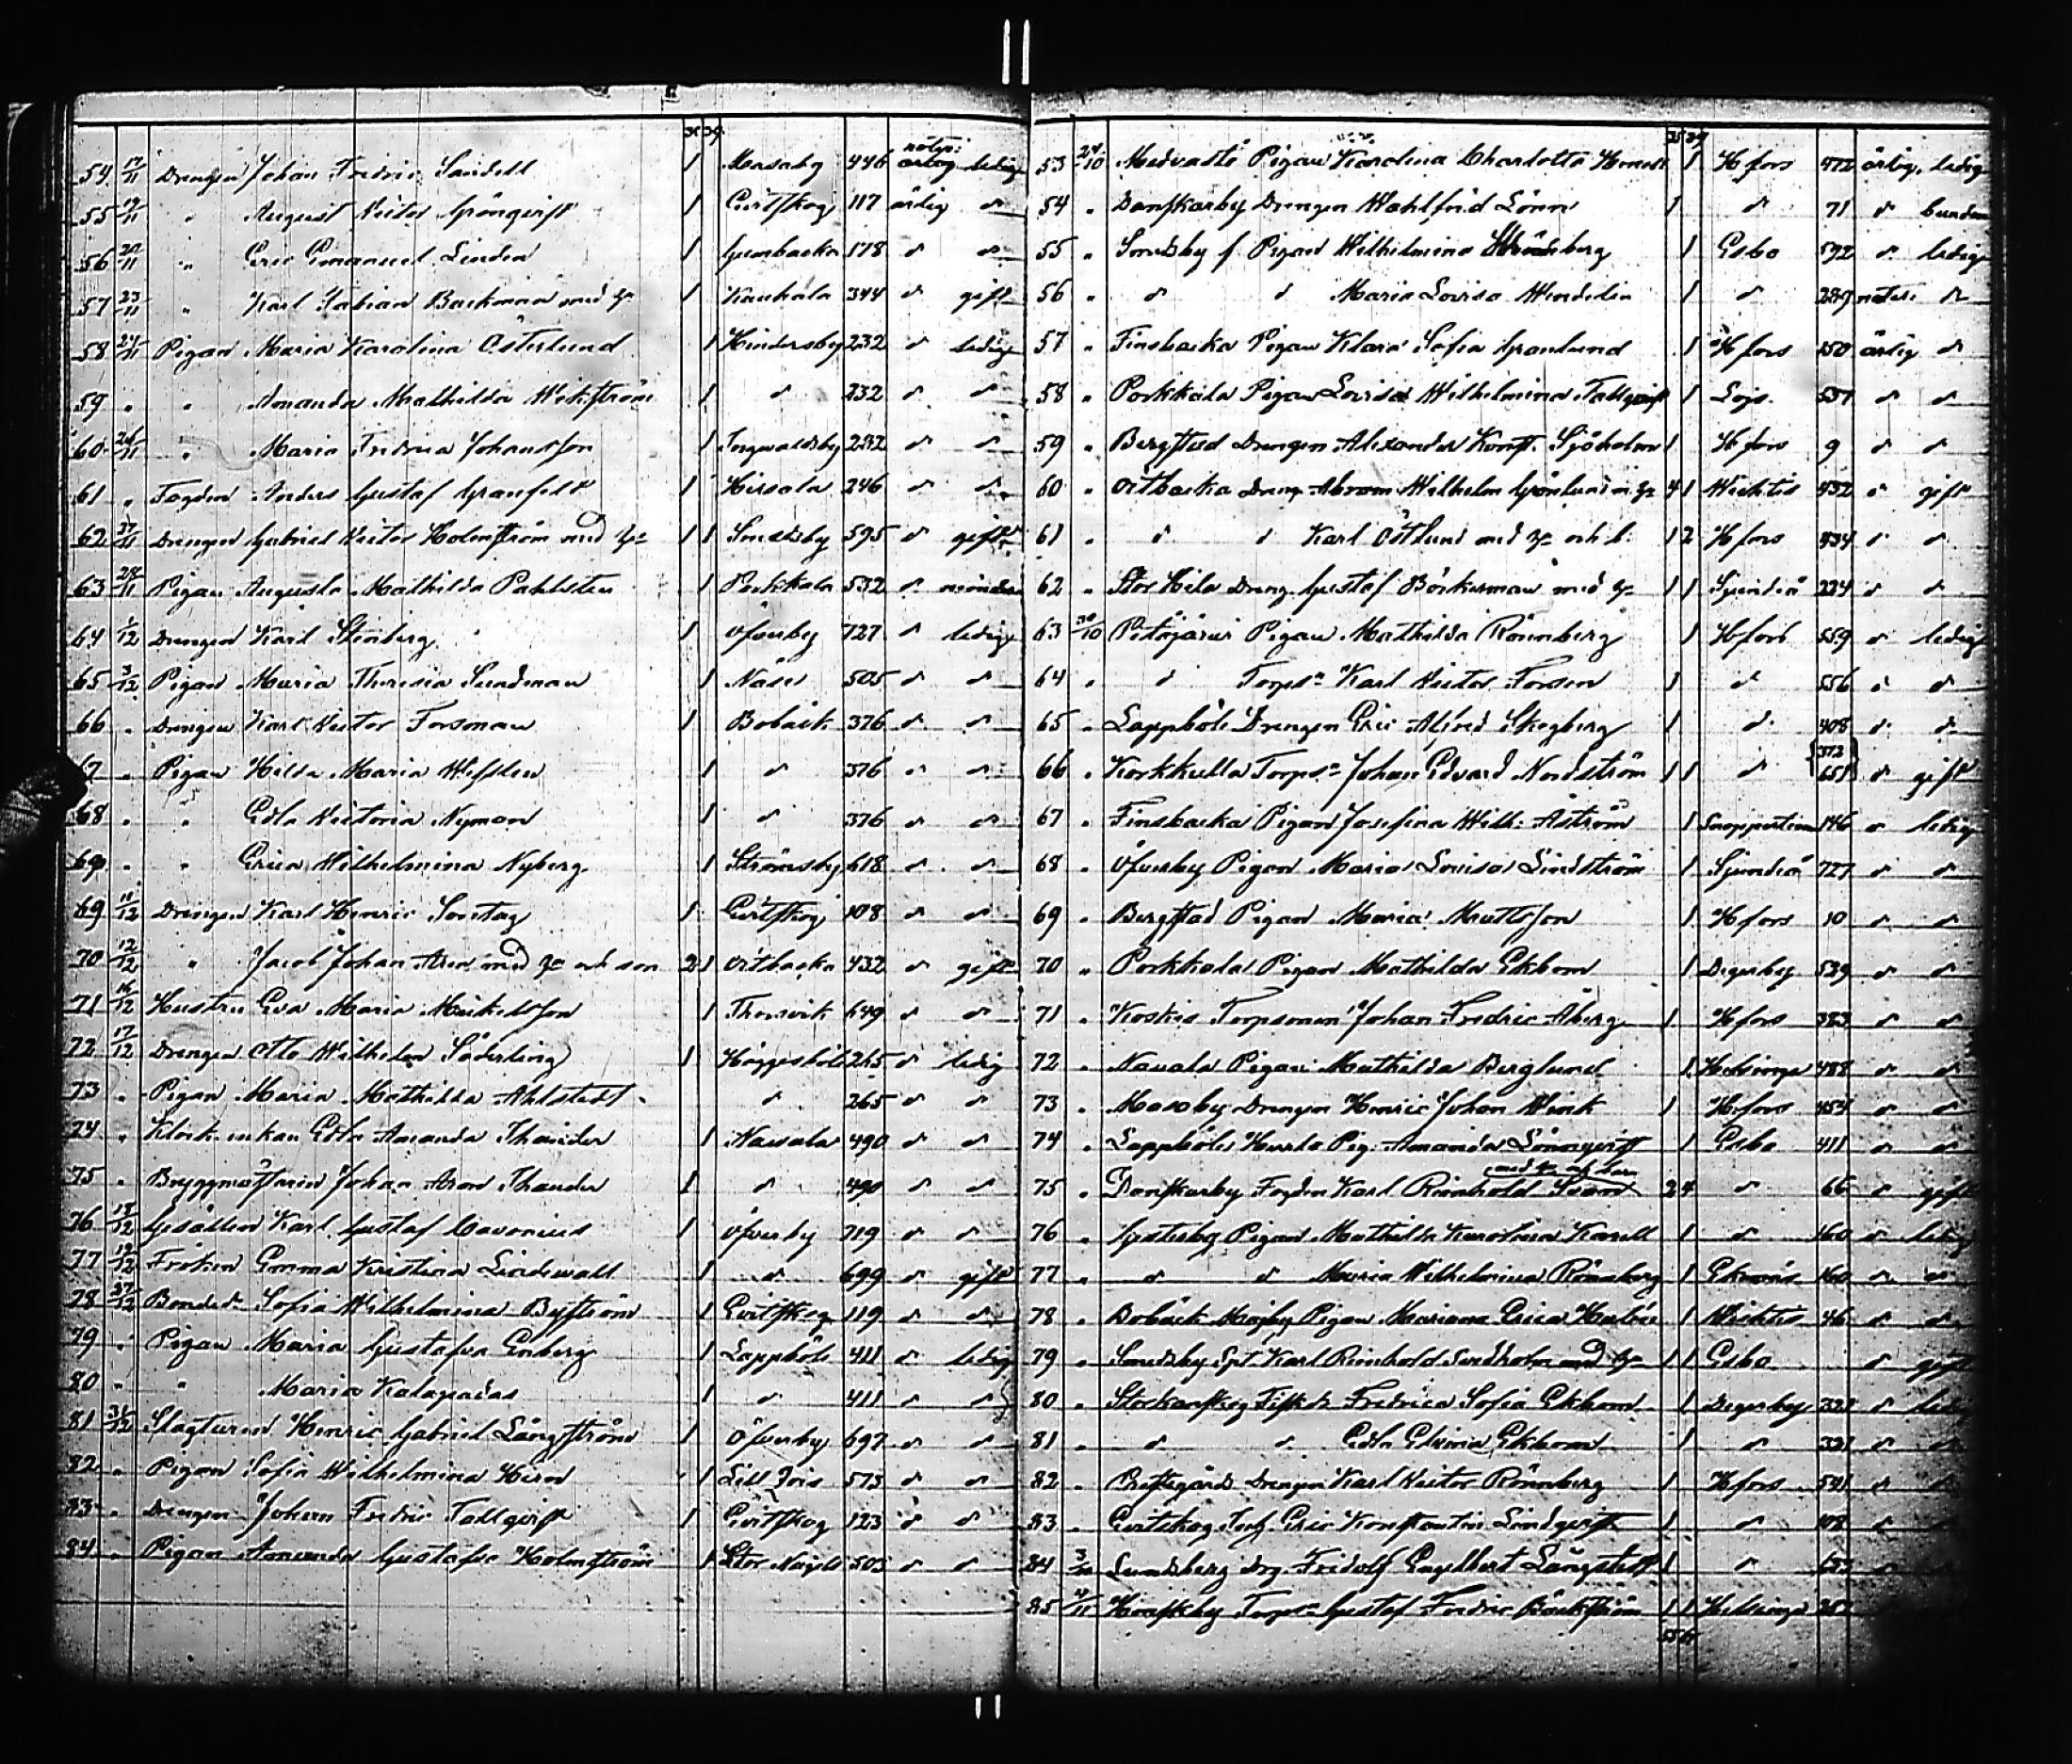 30 39
54 17/11 Drengen Johan Fredric Sandell 1 Masaby 446 ärlig ledig
55 19/11 " August Victor Grönqvist 1 Evitskog 117 ärlig d
56 20/11 " Eric Emanuel Linden 1 Gumbacka 178 d d
57 23/11 " Karl Fabian Backman med h 1 Kauhala 344 d gift
58 24/11 Pigan Maria Karolina Österlund 1 Hindersby 232 d ledig
59 " " Amanda Mathilda Wikström 1 d 232 d d
60 26/11 " Maria Fredrica Johansson 1 Ingwaldsby 232 d d
61 " Fogden Anders Gustaf Granfelt 1 Hirsala 246 d d
62 27/11 Drengen Gabriel Victor Holmström med h 1 1 Smedsby 595 d gift
63 28/11 Pigan Augusta Mathilda Pahlsten 1 Porkkala 532 d
64 1/12 Drengen Karl Stenberg 1 Öfverby 727 d ledig
65 3/12 Pigan Maria Theresia Sundman 1 Näse 505 d d
66 " Drengen Karl Victor Forsman 1 Bobäck 376 d d
67 " Pigan Hilda Maria Wefsten 1 d 376 d d
68 " " Edla Victoria Nyman 1 d 376 d d
69 " " Erica Wilhelmina Nyberg 1 Strömsby 618 d d
69 11/12 Drengen Karl Henric Sontag 1 Evitskog 108 d d
70 12/12 " Jacob Johan Aren med h och son 2 1 Oitbacka 432 d gift
71 16/12 Hustru Eva Maria Mickelsson 1 Thorsvik 649 d d
72 17/12 Drengen Otto Wilhelm Söderling 1 Häggesböle 265 d ledig
73 " Pigan Maria Mathilda Ahlstedt d 265 d d
74 " Edla Amanda Thauder 1 Navala 490 d d
75 " Bryggmästaren Johan Aron Thauder 1 d 490 d d
76 18/12 Gesällen Karl Gustaf Cavonius 1 Öfverby 719 d d
77 19/12 Fröken Emma Kristina Lindewall 1 d 699 d gift
78 27/12 Bonded. Sofia Wilhelmina Byström 1 Evitskog 119 d d
79 " Pigan Maria Gustafva Enberg 1 Lappböle 411 d ledig
80 " " Maria 1 d 411 d d
81 31/12 Slagtaren Henric Gabriel Långström 1 Öfverby 697 d d
82 " Pigan Sofia Wilhelmina Hirn 1 Lill 573 d d
83 " Drengen Johan Fredric Tallqvist 1 Evitskog 123 d d
84 " Pigan Amanda Gustafva Holmström 1 Stor 503 d d
53 24/10 Medvastö Pigan Karolina Charlotta 1 Hfors 472 ärlig ledig
54 " Danskarby Drengen Wahlfrid Lönn 1 d 71 d
55 " Smedsby Pigan Wilhelmina 1 Esbo 592 d ledig
56 " d d Maria Lovisa Wendelin 1 d d
57 " Finsbacka Pigan Klara Sofia Granlund 1 Hfors 150 ärlig d
58 " Porkkala Pigan Lovisa Wilhelmina Tallqvist 1 Lojo 537 d d
59 " Bergstad Drengen Alexander Konst. Sjöholm 1 Hfors 9 d d
60 " Oitbacka Dreng Abram Wilhelm Grönlund m h 4 1 Wichtis 432 d gift
61 " d d Karl Östlund med h och b. 1 2 Hfors 434 d d
62 " Stor Hila Dreng Gustaf Björkman med h 1 1 Sjundeå 224 d d
63 30/10 Petäjärvi Pigan Mathilda Rönnberg 1 Hfors 559 d ledig
64 " d Torpsn Karl Victor Forsen 1 d 556 d d
65 " Lappböle Drengen Eric Alfred Skogberg 1 d 408 d d
66 " Korkkulla Torpsn Johan Edvard Nordström 1 1 d 651 d gift
67 " Finsbacka Pigan Josefina Wilh. Åström 1 146 d ledig
68 " Öfverby Pigan Maria Lovisa Lindström 1 Sjundeå 727 d d
69 " Bergstad Pigan Maria Mattsson 1 Hfors 10 d d
70 " Porkkala Pigan Mathilda Ekbom 1 Degerby 529 d d
71 " Koskis Torpsonen Johan Fredric Åberg 1 Hfors 383 d d
72 " Navala Pigan Mathilda Berglund 1 Helsinge 488 d d
73 " Masaby Drengen Henric Johan Wirk 1 Hfors 454 d d
74 " Lappböle Pig. Amanda Lönnqvist 1 Esbo 411 d d
75 " Danskarby Fogden Karl Reinhold Svan 2 4 d 66 d gift
76 " Gesterby Pigan Mathilda Karolina Karell 1 d 160 d ledig
77 " d d Maria Wilhelmina Rönnberg 1 Ekenäs 160 d d
78 " Bobäck Pigan Mariana Erica 1 Wichtis 46 d d
79 " Smedsby Spl. Karl Reinhold Sundholm med h 1 1 Esbo d gift
80 " Fredrica Sofia Ekbom 1 Degerby 321 d ledig
81 " d d Edla Elvira Ekbom 1 d 321 d d
82 " Prestegårds Drengen Karl Victor Rönnberg 1 Hfors 541 d d
83 " Evitskog Eric Konstantin Lindqvist 1 d 108 d
84 Lundsberg Drg. Fridolf Engelbert Långstedt 1 d 633 d
85 4/11 Torpsn Gustaf Fredric Bäckström 1 1 Helsinge